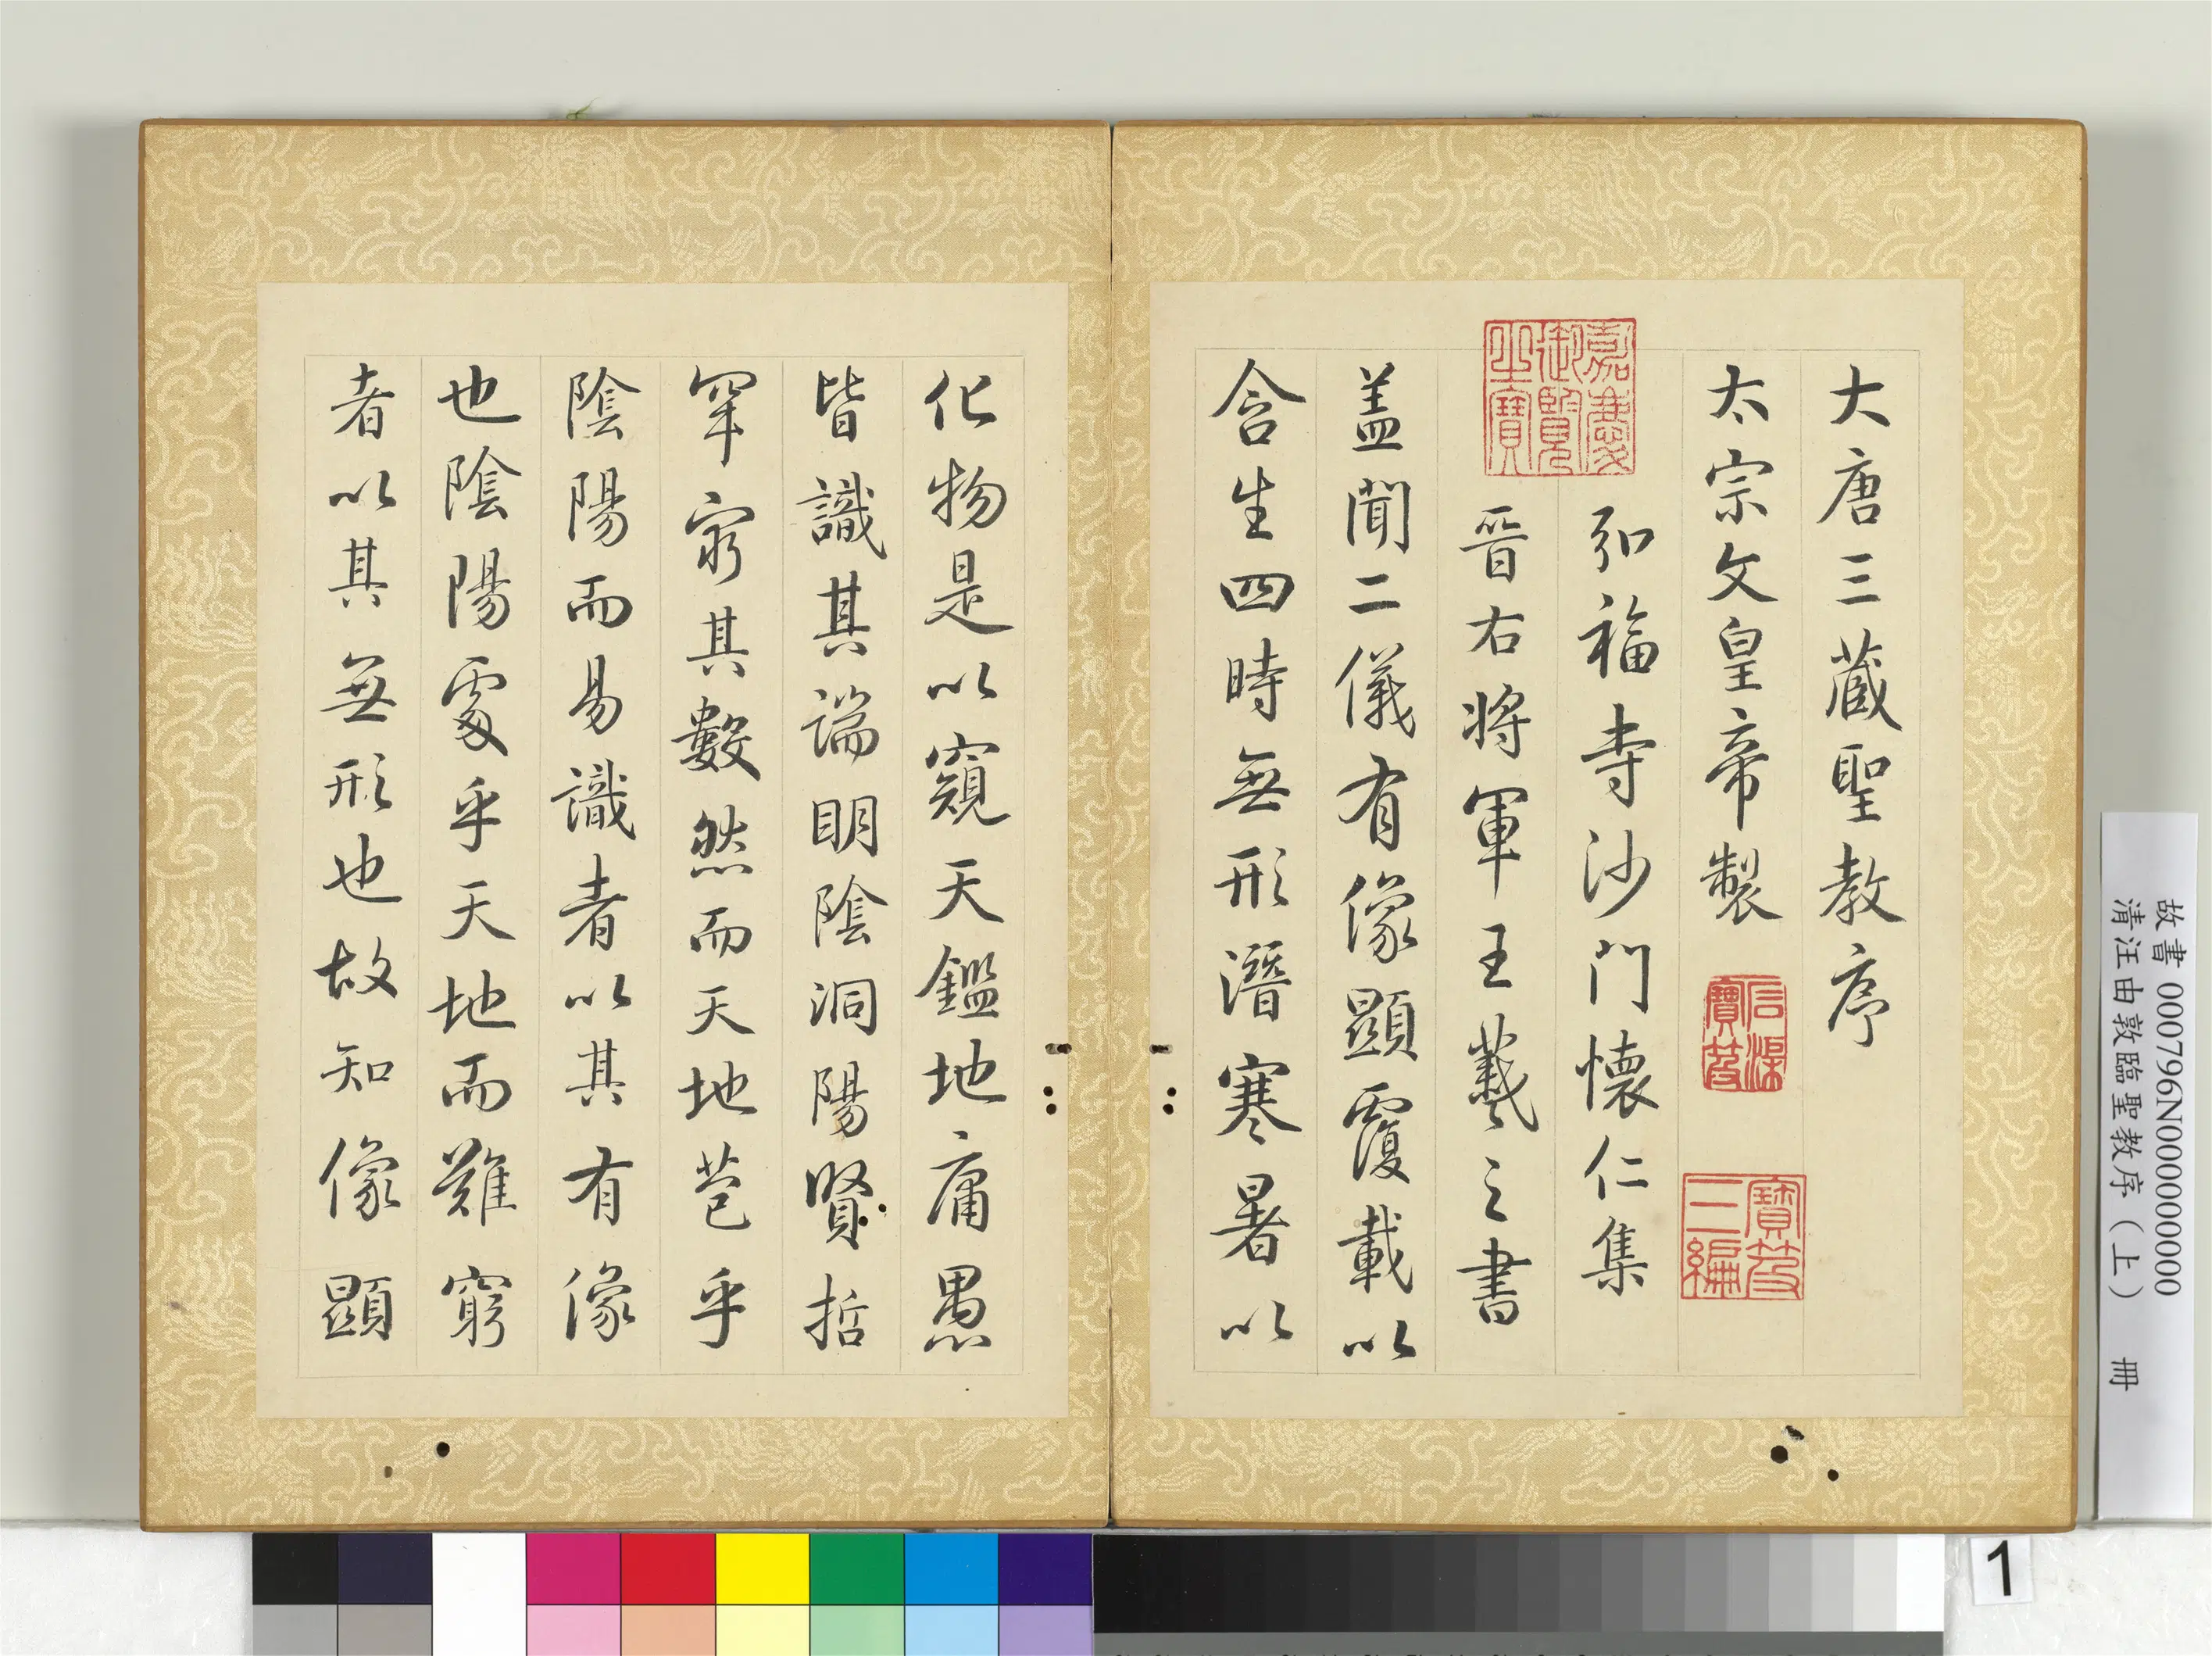 大唐三藏聖教序
太宗文皇帝製
弘福寺沙門懷仁集
晉右將軍王羲之書
盖聞二儀有像顯覆載以
含生四時無形潛寒暑以
化物是以窺天鑑地庸愚
皆識其端明陰洞陽賢哲
罕窮其數然而天地苞乎
陰陽而易識者以其有像
也陰陽處乎天地而難窮
者以其無形也故知像顯
嘉慶御覽之寶
石渠寶笈
寶笈三編
故書 000796N000000000
清汪由敦臨聖教序（上） 冊
1